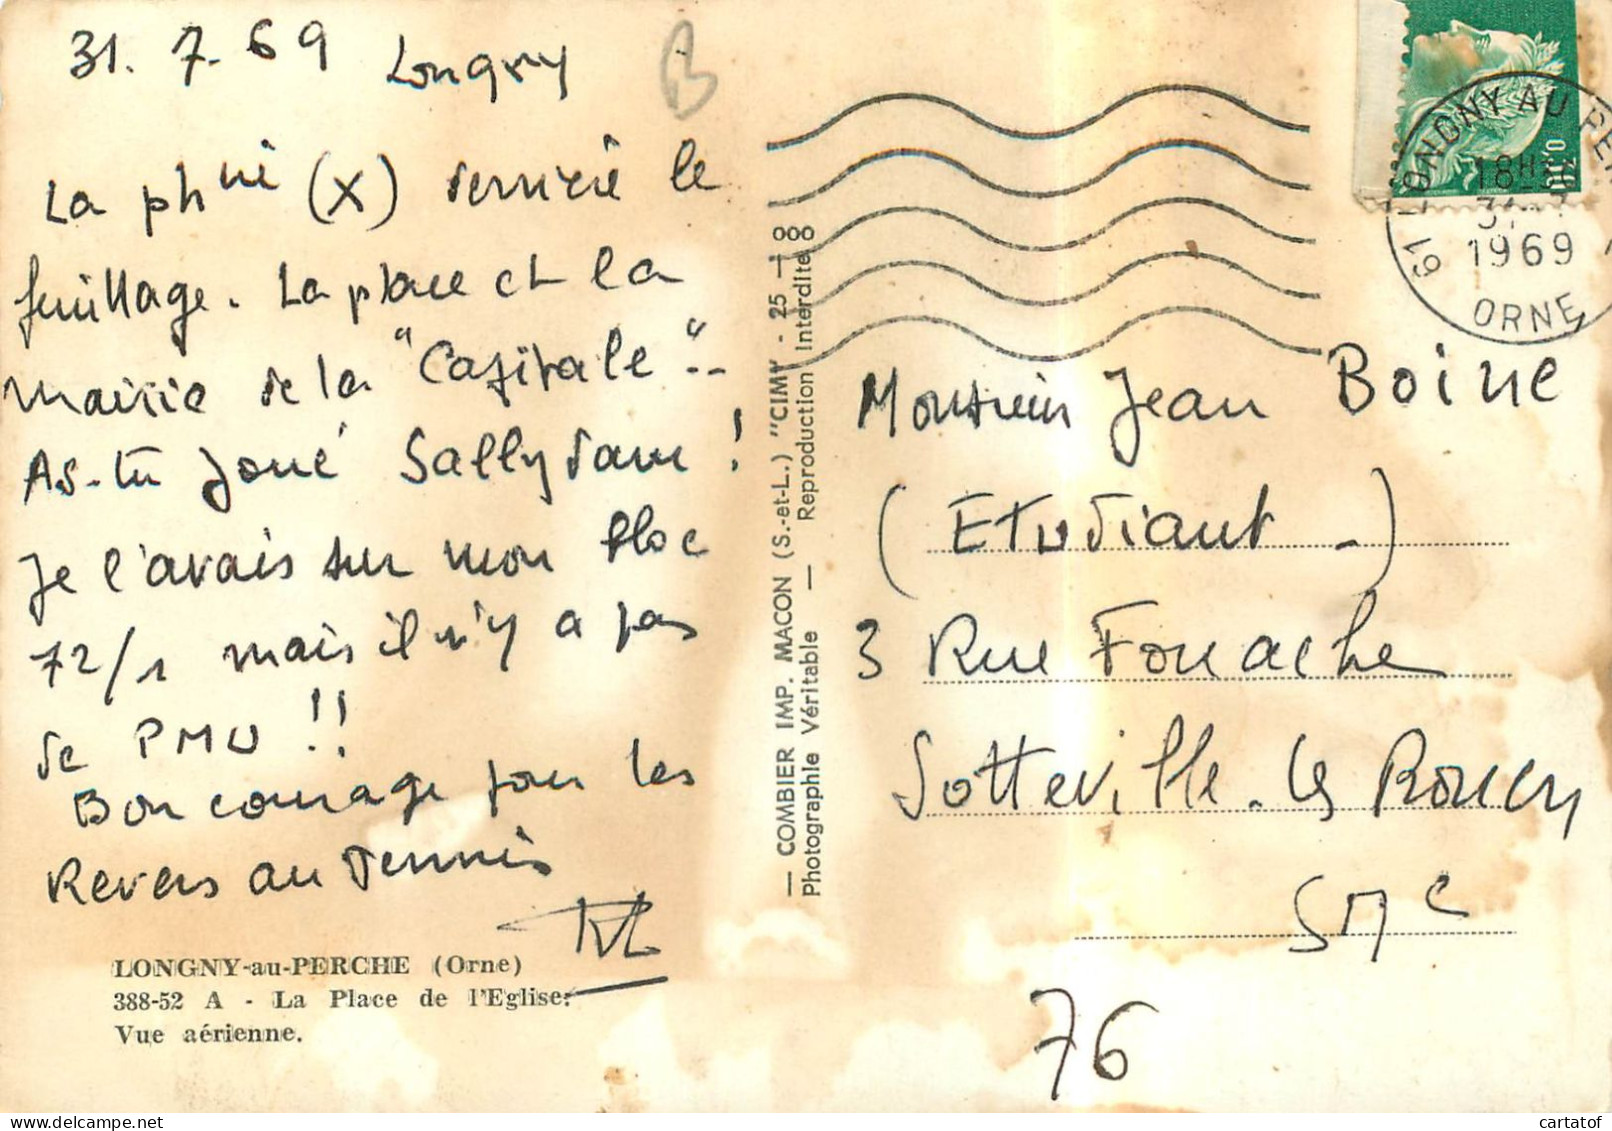 31.7.69 Longny
La phie (X) derrière le
feuillage. La place et la
Mairie de la "Capitale"..
As-tu Joué Sallydam !
Je l'avais sur mon bloc
72/1 mais il n'y a pas
de PMU !!
Bon courage pour les
Revers au Tennis
LONGNY-au-PERCHE (Orne)
388-52 A - La Place de l'Eglise.
Vue aérienne.
B
— COMBIER IMP. MACON (S.-et-L.) "CIM" - 25 - 8
Photographie Véritable — Reproduction Interdite
0,30
61 LONGNY AU PER
18H
31-7
1969
ORNE
Monsieur Jean Boine
(Etudiant -)
3 Rue Fouache
Sotteville-les Rouen
SMe
76
cartatof